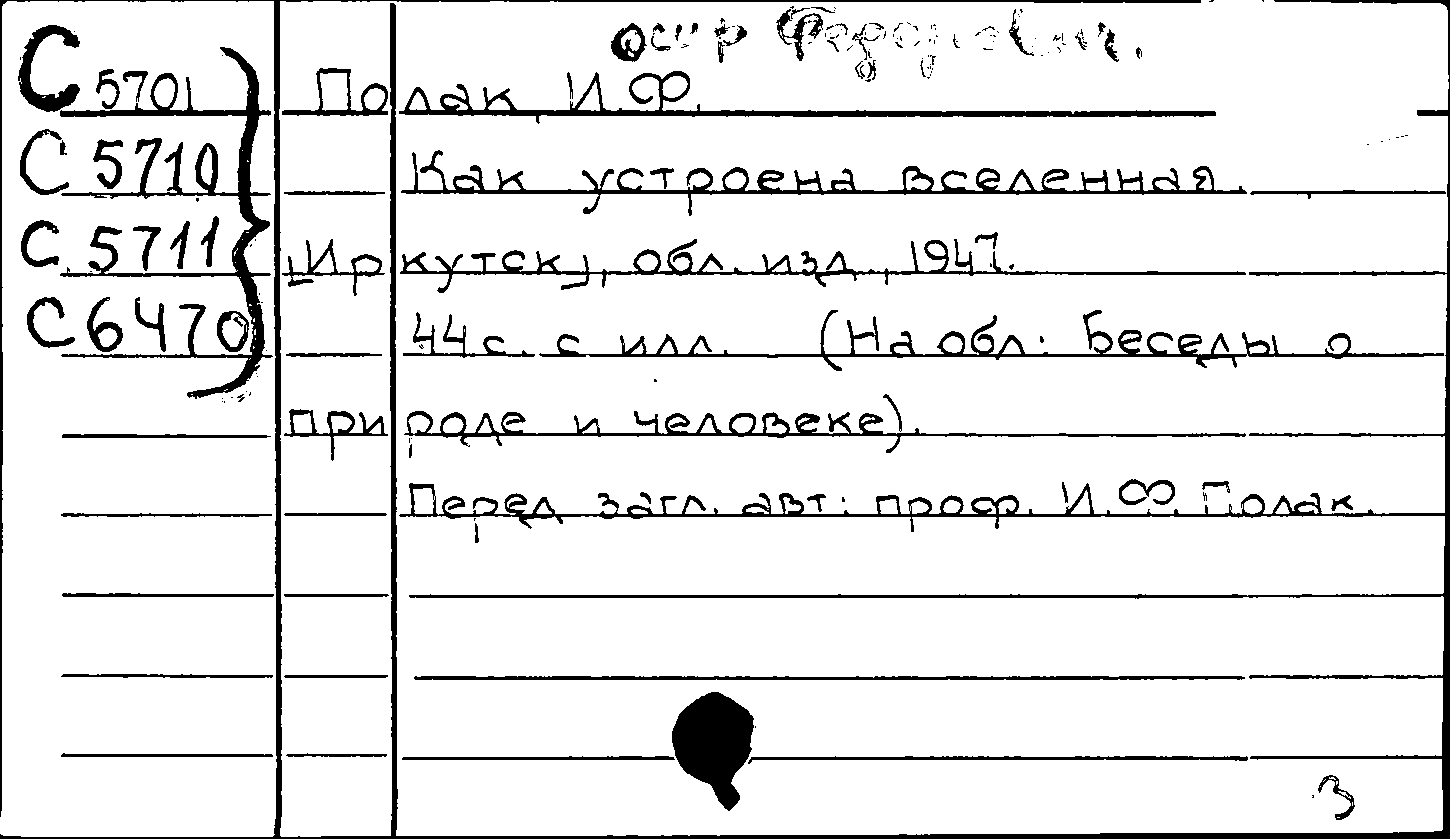 Федорович.
С 5701 Полак, И.Ф.
С 5710 Как устроена вселенная.
С 5711 [Иркутск], обл. изд., 1947.
С 6470 44 с. с илл. (На обл: Беседы о
природе и человеке).
Перед загл. авт: проф. И.Ф. Полак.
3